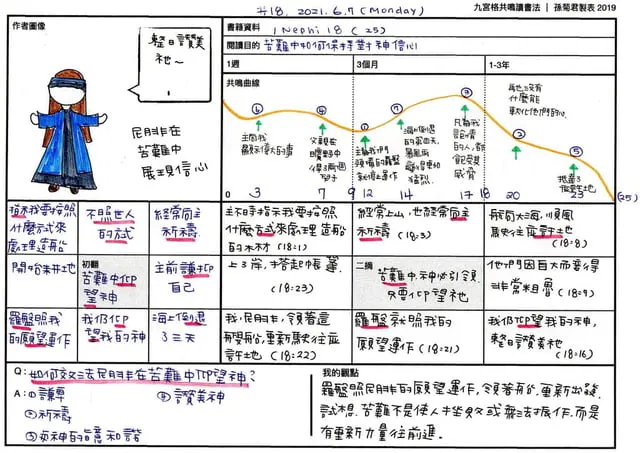 #18. 2021.6.7 (Monday)
九宮格共鳴讀書法 | 孫菊君製表 2019
作者圖像
整日讚美
祂～
尼腓在
苦難中
展現信心
書籍資料
1 Nephi 18 (25)
閱讀目的 苦難中如何保持對神信心
1週
3個月
1-3年
共鳴曲線
⑥
④
①
⑦
③
②
⑤
主向我
顯示偉大的事
父親在
曠野中
得
羅盤
就停止運作
海上倒退
凡為我
說話
的人,都
威脅
什麼能
軟化他們的心
抵達了
應許地
3
7
9
12
14
17
18
20
23
(25)
指示我要按照
什麼方式來
處理造船
不照世人
的方式
經常向主
祈禱
主不時指示我要按照
什麼方式來處理造船
的木材 (18:1)
經常上山,也經常向主
祈禱 (18:3)
航向大海,順風
駛往應許地
(18:8)
開始耕地
初觀
苦難中仰
望神
主前謙抑
自己
上了岸,搭起帳篷
(18:23)
二摘
苦難中,神必引領,
只要仰望祂
他們因自大而變得
非常粗魯 (18:9)
羅盤照我
的願望運作
我仍仰
望我的神
海上倒退
了三天
我,尼腓,領著這
艘船,重新駛往應
許地 (18:22)
羅盤就照我的
願望運作 (18:21)
我仍仰望我的神,
整日讚美祂 (18:16)
Q: 如何效法尼腓在苦難中仰望神?
A: ①謙卑
④讚美神
②祈禱
③與神的旨意和諧
我的觀點
羅盤照尼腓的願望運作,領著船,重新出發.
試想,苦難不是使人坐以或無法振作,而是
有重新力量往前進。